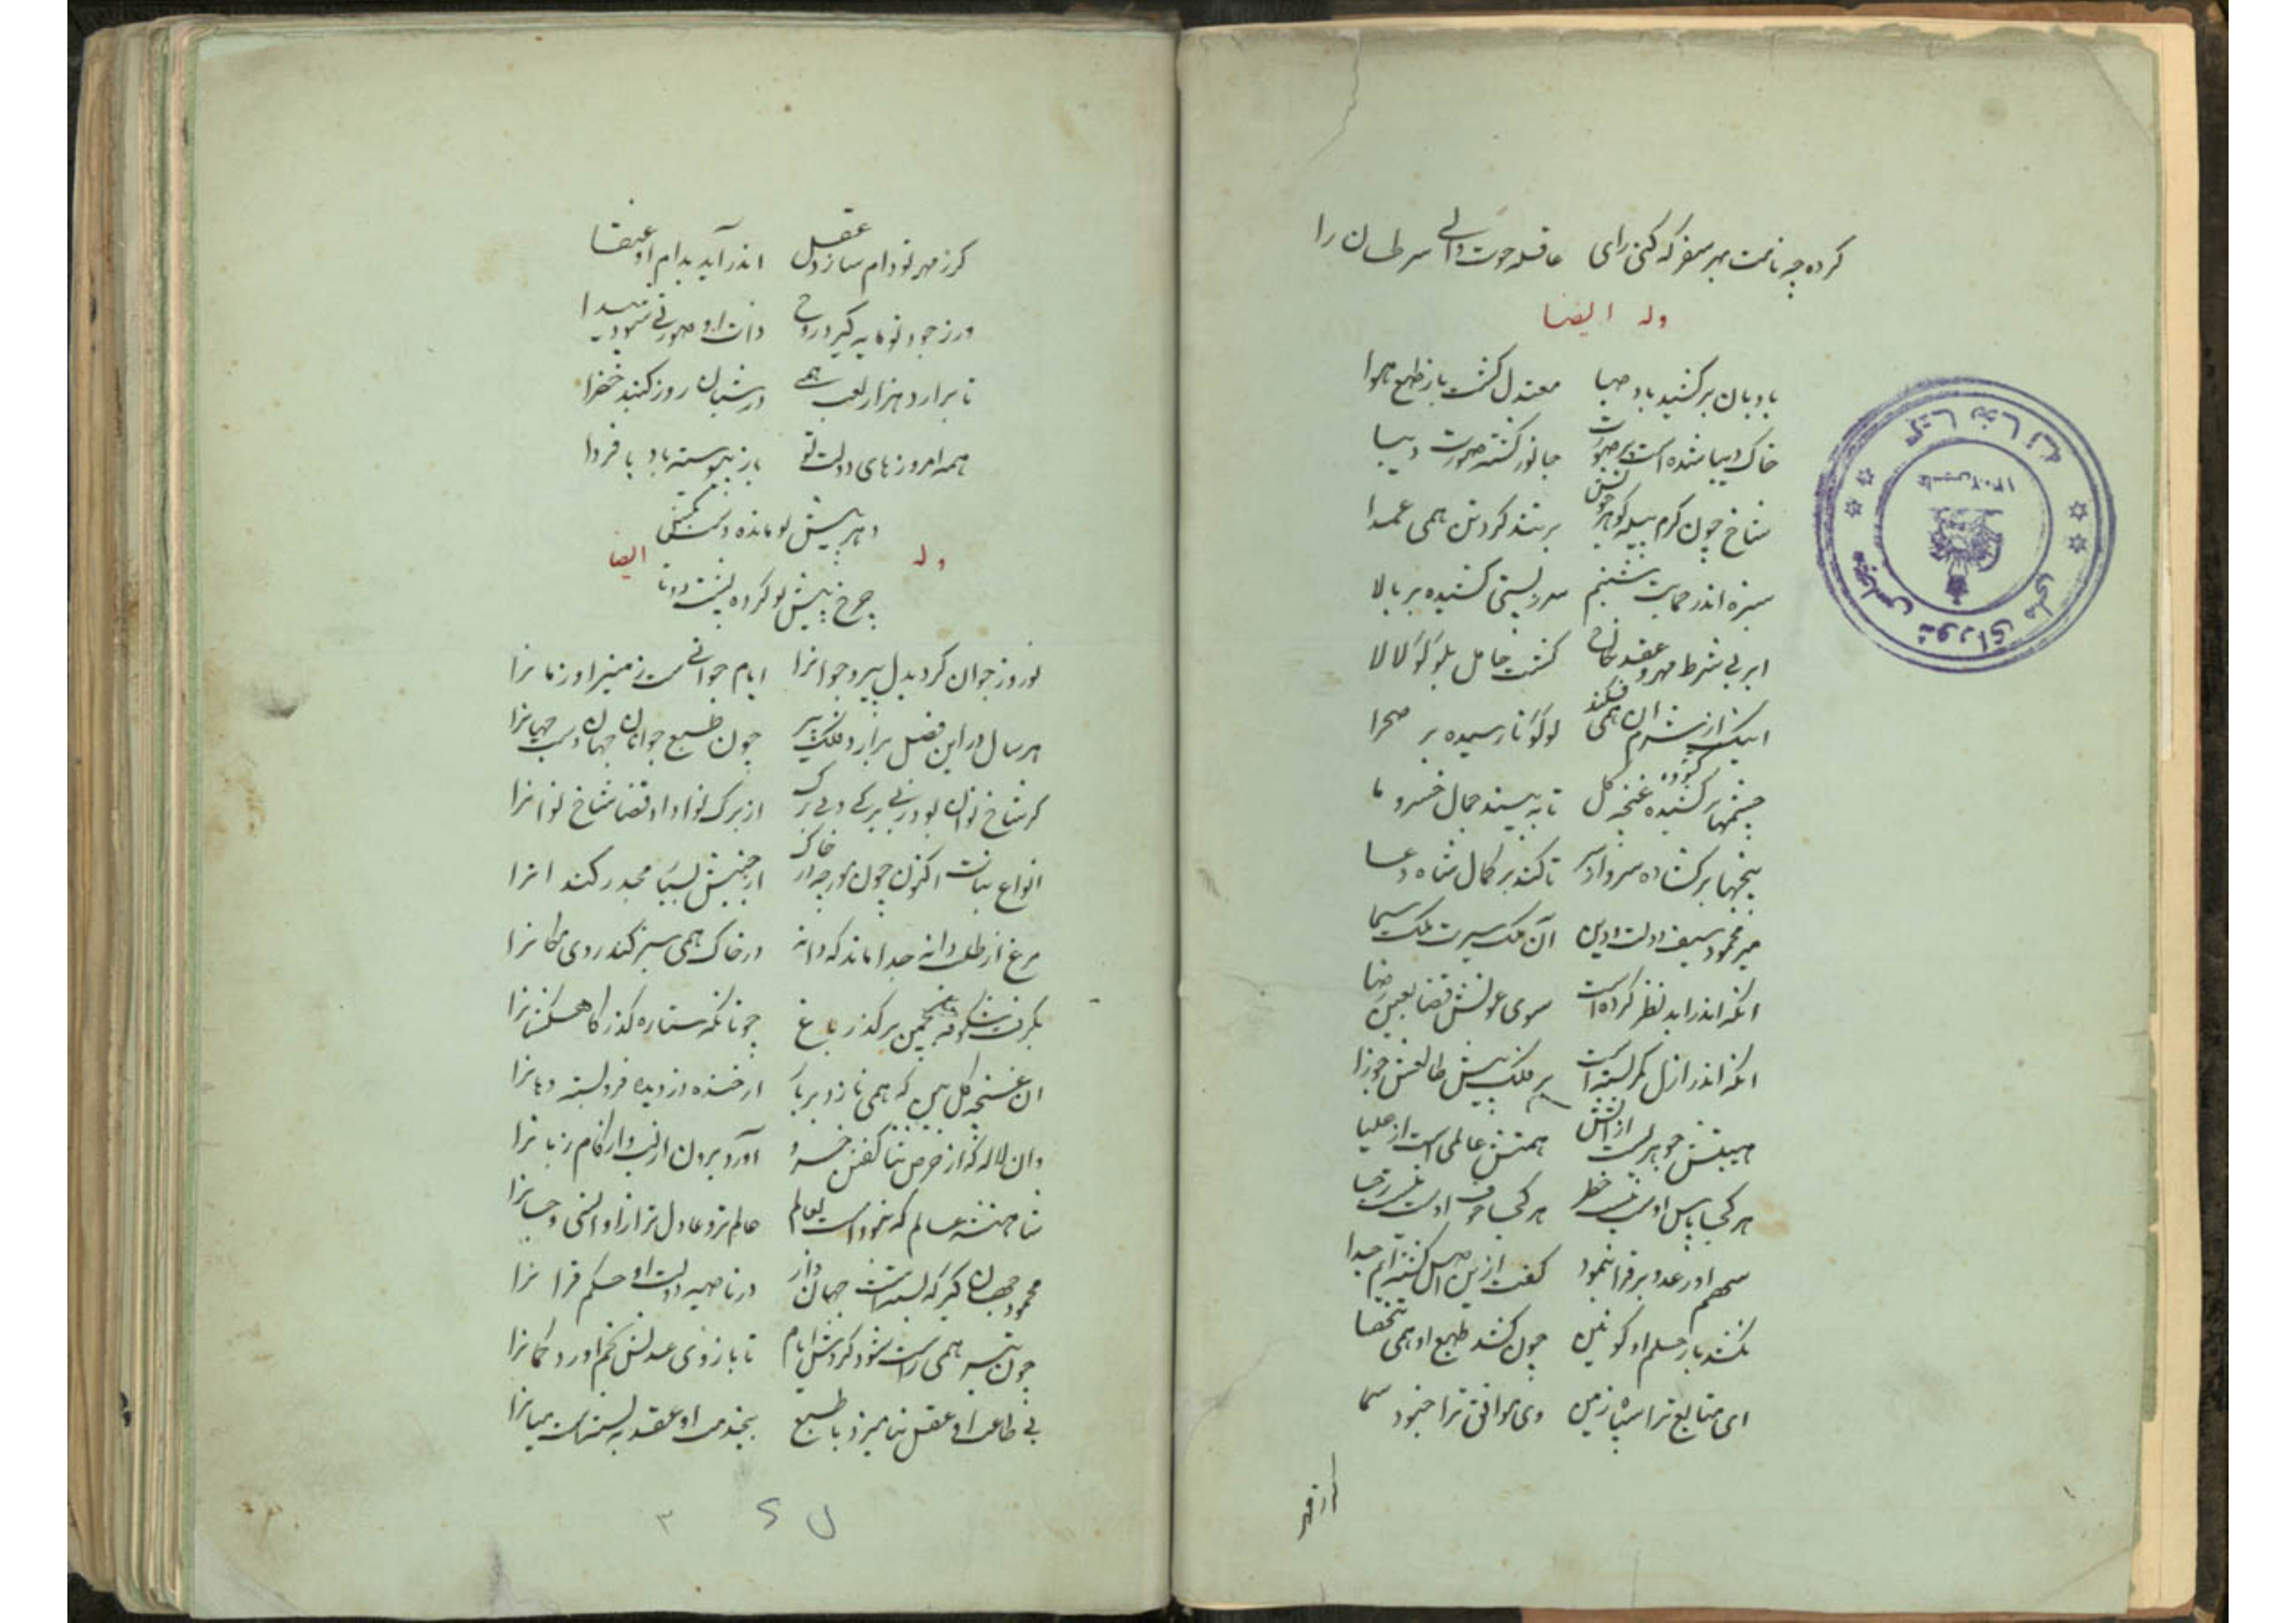 کرده چو نامت بهر سفر که کنی رای عاقله حوت والی سرطان را
وله ایضا
بادبان برکشید باد صبا معتدل گشت باز طبع هوا
خاک دیبا شده است پر صورت جانور گشته صورت دیبا
شاخ چون کرم پیله گوهر خویش بر تند گرد تن همی عمدا
سبزه اندر حمایت شبنم سر ز پستی کشیده بر بالا
ابر بی شرط مهر و عقد نکاح گشت حامل بلؤلؤ لالا
اینک از شرم آن همی فکند لؤلؤ نارسیده بر صحرا
چشمها برکشیده غنچه گل تا ببیند جمال خسرو ما
پنجها برگشاده سرو آزاد تا کند بر کمال شاه دعا
میر محمود سیف دولت و دین آن ملک سیرت ملک سیما
آنکه اندر ابد نظر کرده است سوی عونش قضا بعین رضا
آنکه اندر ازل کمر بسته است بر فلک پیش طالعش جوزا
هیبتش جوهریست از آتش همتش عالمی است از علیا
هر کجا پاس او نیست خطر هر کجا خوف اوست نیست رجا
سهم او رعد و برق را بنمود گفت ازین اصل گشته‌ایم جدا
نکشد بار حلم او کونین چون کشد طبع او همی تنها
ای متابع ترا سپاه زمین وی موافق ترا جنود سما
گر ز مهر
گر ز مهر تو دام سازد عقل اندر آید بدام او عنقا
ور ز جود تو مایه گیرد روح ذات او صورتی شود پیدا
تا برآرد هزار لعب همی در شبان روز گنبد خضرا
همه امروزهای دولت تو باز پیوسته باد با فردا
دهر پیش تو مانده دست بکش
وله ایضا
چرخ پیش تو کرده پشت دوتا
نوروز جوان کرد بدل پیر و جوانرا ایام جوانی است زمین را و زمانرا
هر سال در این فصل برآرد فلک پیر چون طبع جوانان جهان دوست جهانرا
گر شاخ نوان بود ز بی برگی و بی برگ از برگ نوا داد قضا شاخ نوانرا
انواع نبات اکنون چون مورچه در خاک از جنبش بسیار مجدر کند آنرا
مرغ از طلب دانه جدا ماند که دانه در خاک همی سبز کند روی مکانرا
بگرفت شکوفه بچمن برگذر باغ چونانکه ستاره گذر کاهکشانرا
آن غنچه گل بین که همی نازد بر باد از خنده دزدیده فرو بسته دهانرا
وان لاله که از حرص ثنا گفتن خسرو آورد برون از لب و از کام زبانرا
شاهنشه عالم که نبوده است بعالم عالم‌تر و عادل‌تر ازو انسی و جانرا
محمود جهانگیر که بسته است جهاندار در ناصیه دولت او حکم قرانرا
چون تیر همی راست شود گردش ایام تا بازوی عدلش بخم آورد کمانرا
بی طاعت او عقل نیامیزد با طبع بیخدمت او عقد نبسته است میانرا
۳
کتابخانه
مجلس شورای ملی
تاسیس ۱۳۰۲